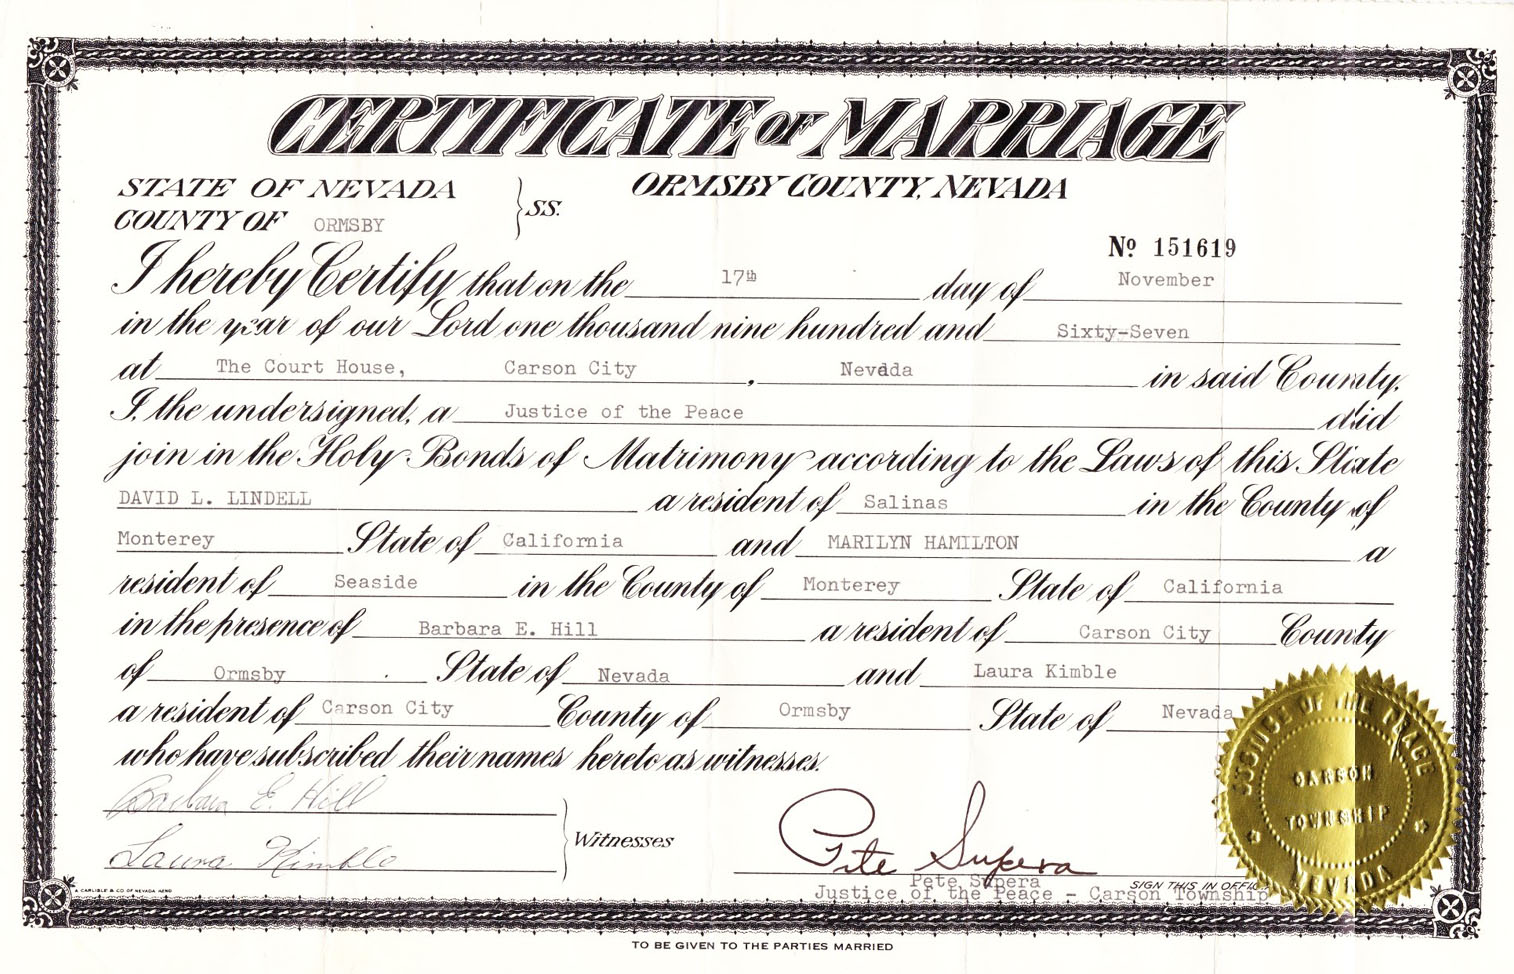 CERTIFICATE OF MARRIAGE
STATE OF NEVADA } SS. ORMSBY COUNTY, NEVADA
COUNTY OF ORMSBY
No 151619
I hereby Certify that on the 17th day of November
in the year of our Lord one thousand nine hundred and Sixty-Seven
at The Court House, Carson City, Nevada in said County,
I, the undersigned, a Justice of the Peace did
join in the Holy Bonds of Matrimony according to the Laws of this State
DAVID L. LINDELL a resident of Salinas in the County of
Monterey State of California and MARILYN HAMILTON a
resident of Seaside in the County of Monterey State of California
in the presence of Barbara E. Hill a resident of Carson City County
of Ormsby State of Nevada and Laura Kimble
a resident of Carson City County of Ormsby State of Nevada
who have subscribed their names hereto as witnesses.
Barbara E. Hill
Laura Kimble
Witnesses
Pete Supera
Pete Supera
SIGN THIS IN OFFIC
Justice of the Peace - Carson Township
JUSTICE OF THE PEACE
CARSON
TOWNSHIP
NEVADA
A CARLISLE & CO OF NEVADA RENO
TO BE GIVEN TO THE PARTIES MARRIED